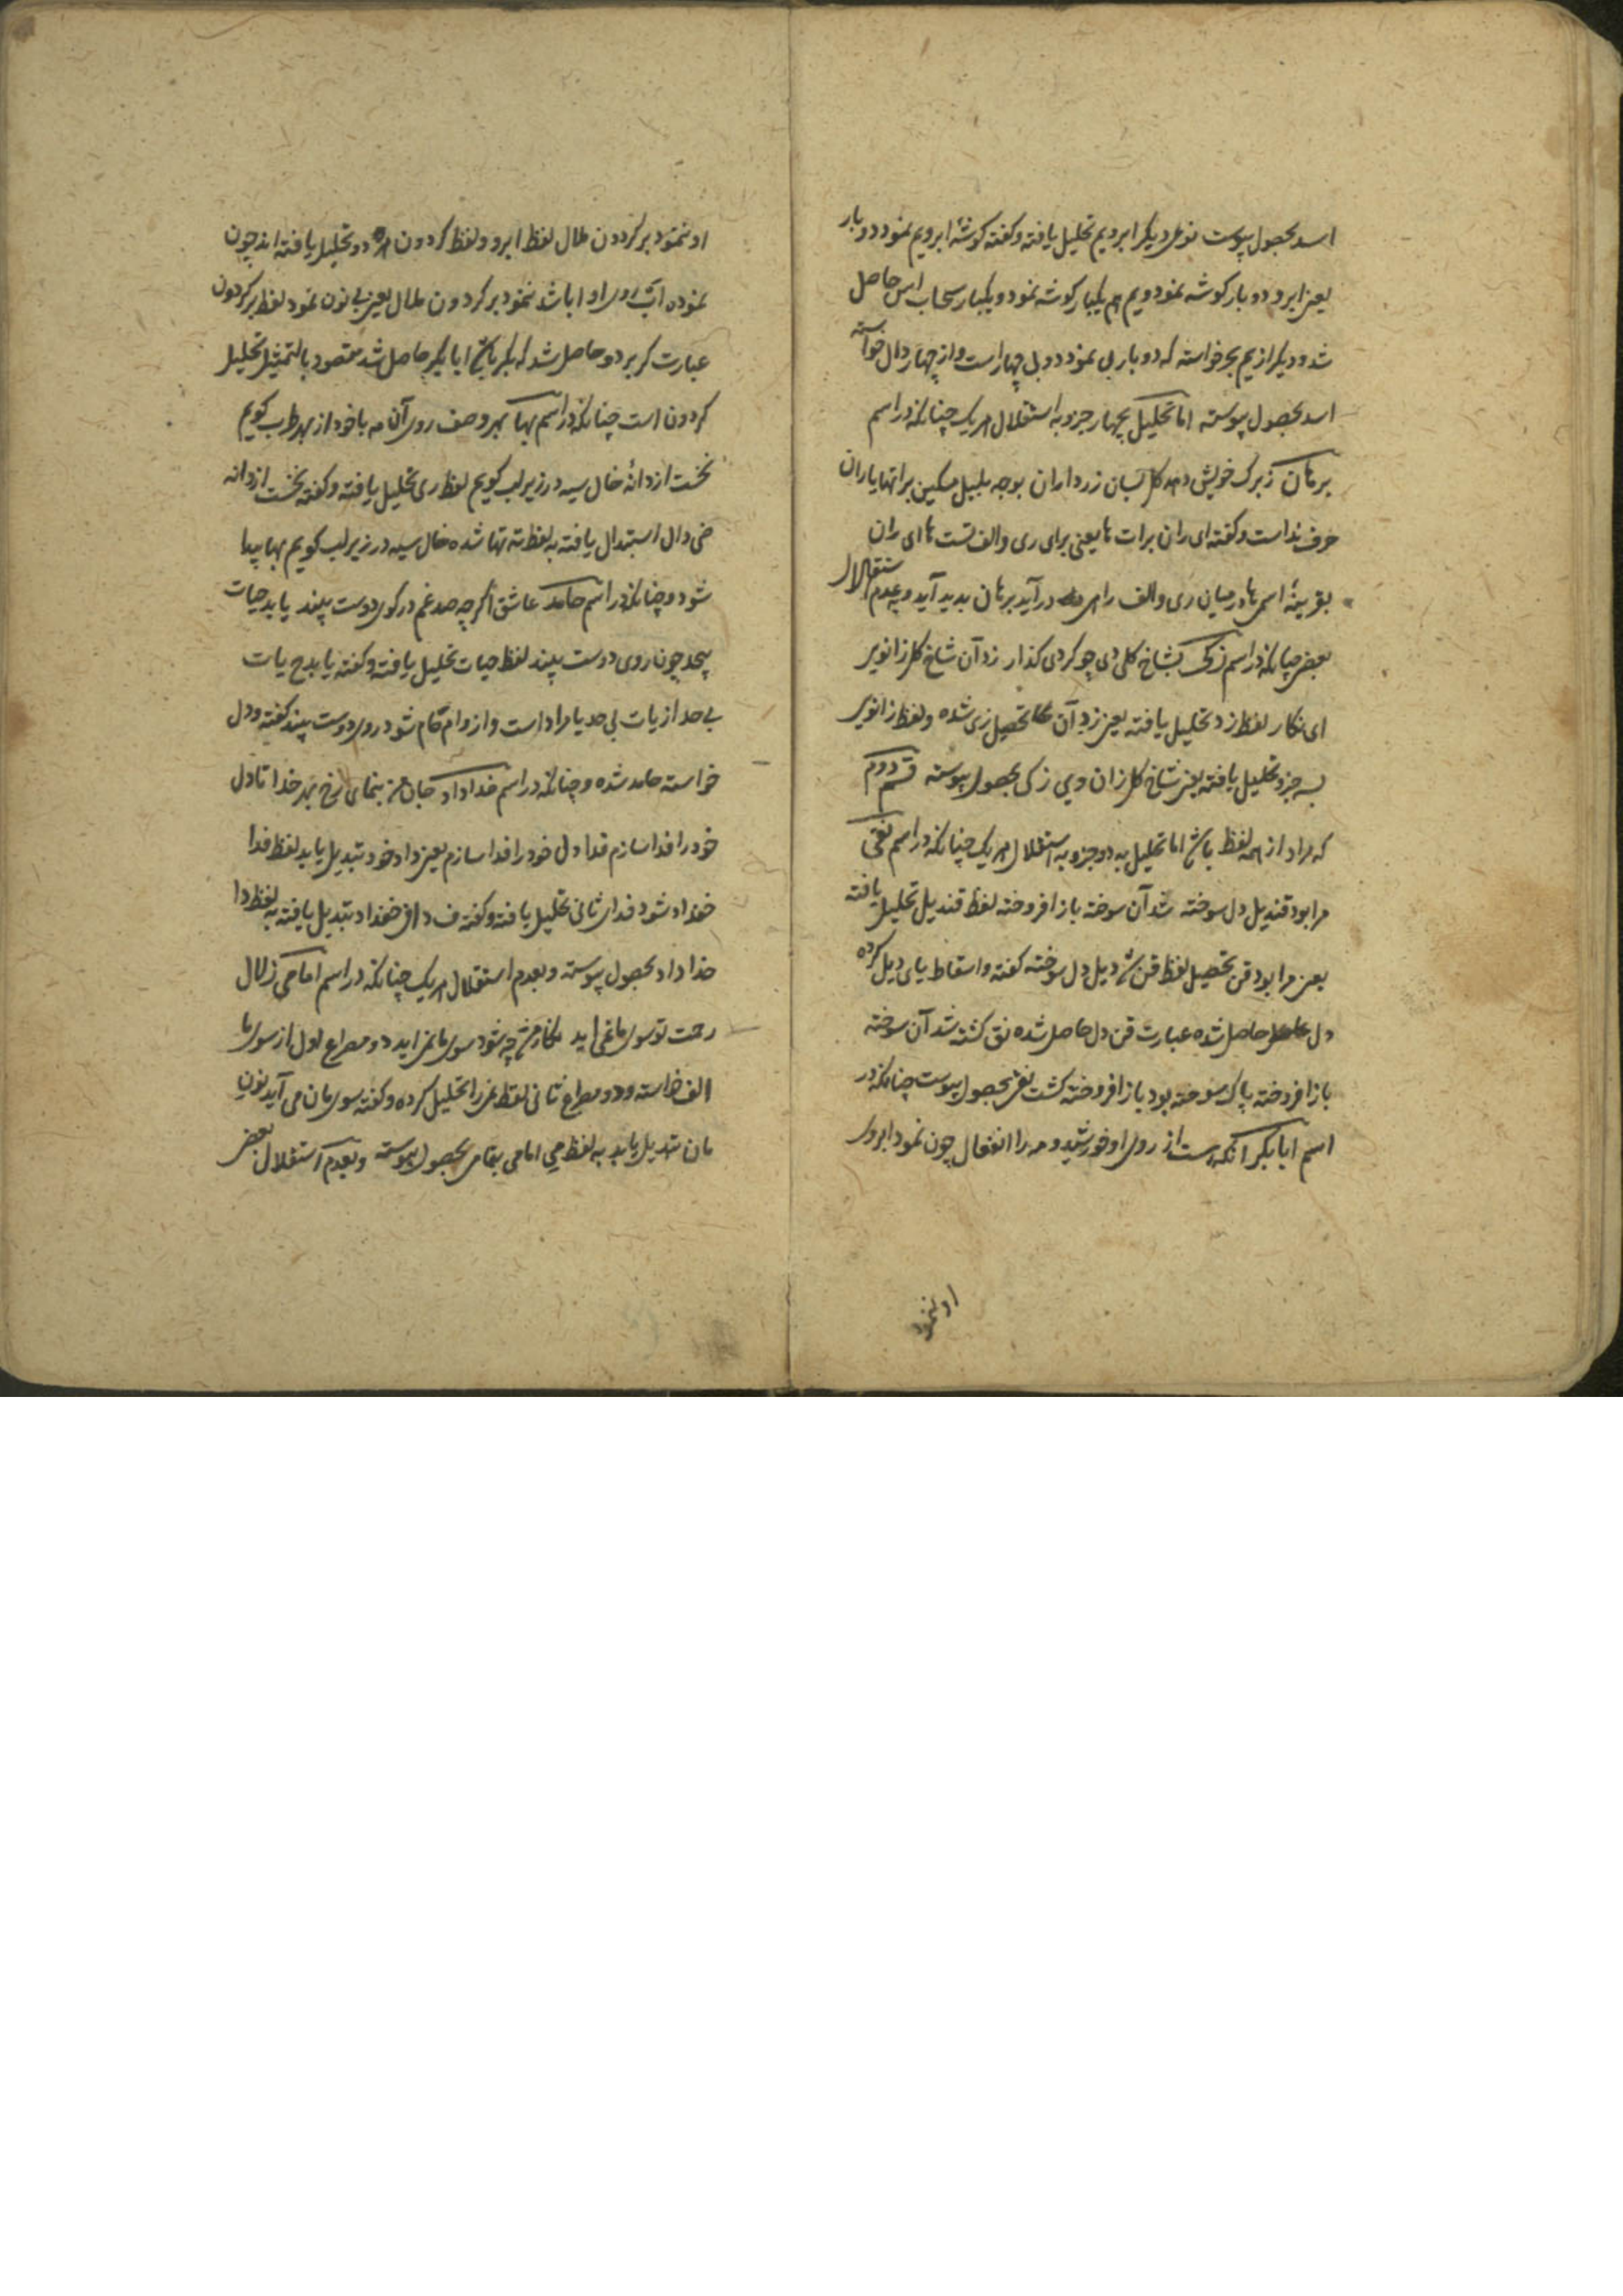 اسد بحصول پیوست نوعی دیگر ابرویم تحلیل یافته و کفته کوشهٔ ابرویم نمود دو بار
یعنی ابرو دو بار کوشه نمود ویم هم یکبار کوشه نمود و یکبار سحاب اس حاصل
شد و دیکر از یم بحر خواسته که دو بار بی نمود دو بی چهار است و از چهار دال خواسته
اسد بحصول پیوسته اما تحلیل بچهار جزو به استقلال هر یک چنانکه در اسم
برهان ز برک خویش دهد کل بسان زرداران بوجه بلبل مسکین براتها یاران
حرف نداست و کفته ای ران برات ها یعنی برای ری والف تست ها ای ران
بقرینهٔ اسمی ها در میان ری والف را در آید برهان بدید آید و بعدم استقلال
بعضی چنانکه در اسم زکی بشاخ کلی دی چو کردی کذار زد آن شاخ کل زانو بر
ای نکار لفظ زد تحلیل یافته یعنی زد آن تحصیل زی شده و لفظ زانو بر
بسه جزو تحلیل یافته یعنی شاخ کل زان وبی زکی بحصول پیوسته قسم دوم
که مراد از همه لفظ باشد اما تحلیل به دو جزو به استقلال هر یک چنانکه در اسم نقی
مرا بود قندیل دل سوخته شد آن سوخته باز افروخته لفظ قندیل تحلیل یافته
یعنی مرا بود قن تحصیل لفظ قن شد دیل دل سوخته کفته و اسقاط یای دیل کرده
دل حاصل شده عبارت قن دل حاصل شده نق کشته شد آن سوخته
باز افروخته پاک سوخته بود باز افروخته کشت نقی بحصول پیوست چنانکه در
اسم ابابکر آنکه هست از روی او خورشید و مه را انفعال چون نمود ابروی
او نمود
او نمود بر کردون هلال لفظ ابرو و لفظ کردون هر دو تحلیل یافته اند چون
نموده اب روی او ابا شد نمود بر کردون هلال یعنی بی نون نمود لفظ بر کردون
عبارت کر بر دو حاصل شد که بکر باشد ابابکر حاصل شد مقصود بالتمثیل تحلیل
کردون است چنانکه در اسم بها بهر وصف روی آن مه با خود از بهر طرب کویم
نخست از دانهٔ خال سیه در زیر لب کویم لفظ ری تحلیل یافته و کفته نخست از دانه
دال استبدال یافته به لفظ ته تها شده خال سیه در زیر لب کویم بها پیدا
شود و چنانکه در اسم حامد عاشق اکرچه صد غم در کوی دوست بیند یابد حیات
بیحد چون روی دوست بیند لفظ حیات تحلیل یافته و کفته یابد ح یات
بی حد از یات بی حد یا مراد است و از وام قام شود روی دوست بیند کفته و دل
خواسته حامد شده و چنانکه در اسم خداداد جان من بنمای رخ بهر خدا تا دل
خود را فدا سازم فدا دل خود را فدا سازم یعنی داد خود تبدیل یابد لفظ فدا
خداد شود فدای ثانی تحلیل یافته و کفته ف داف خداد تبدیل یافته به لفظ دا
خداداد بحصول پیوسته و بعدم استقلال هر یک چنانکه در اسم امامی زلال
رحمت تو سوی ما نمی اید چه شود سوی ما نمی اید در مصراع اول از سوی ما
الف خواسته و در مصراع ثانی لفظ نمی را تحلیل کرده و کفته سوی مان می آید نون
مان تبدیل یابد به لفظ می امامی بحصول پیوسته و بعدم استقلال بعضی